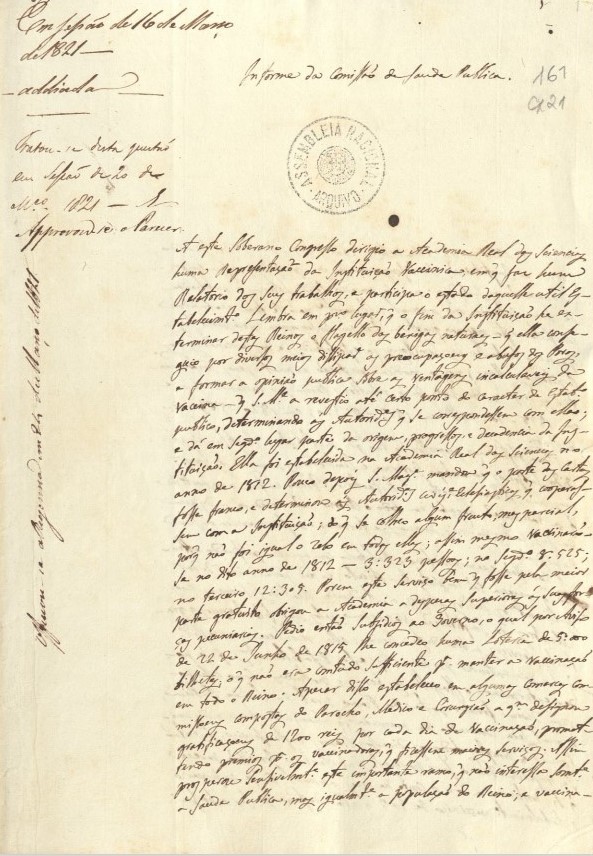 Em sessão de 16 de Março
de 1821 —
— addiada —
Tratou-se desta questão
em Sessão de 20 de
Mço 1821 — E
Approvou-se o Parecer.
161
Cx 21
Informe da Comissão de Saude Publica.
ASSEMBLEIA NACIONAL
ARQUIVO
A este Soberano Congresso dirigio a Academia Real das Sciencias
huma representação da Instituição Vaccinica, em q faz hum
Relatorio dos seus trabalhos, e participa o estado daquelle util Es-
tabelecimto. Lembra em pro lugar, q o fim da Instituição he ex-
terminar destes Reinos o flagello das bexigas naturaes — q ella conse-
guio por diversos meios dissipar as preocupaçoens e abusos dos Povos,
a formar a opinião publica sobre as ventagens incalculaveis da
Vaccina — q S. Mе a revestio até certo ponto do caracter de Estabo
publico, determinando ás Autorides q se correspondessem com ella;
e dá em segdo lugar parte da origem, progressos, e decadencia da Ins-
tituição. Ella foi estabelecida na Academia Real das Sciencias no
anno de 1812. Pouco depois S. Mage mandou q o porte das Cartas
fosse franco, e determinou ás Autorides Ecclesiasticas, q cooperas-
sem com a Instituição; do q se colheo algum fructo, mas parcial,
pois não foi igual o zelo em todas ellas; assim mesmo vaccinarão-
se no dito anno de 1812 — 3:323 pessoas; no segdo 8:525;
no terceiro 12:305. Porem este serviço bem q fosse pela maior
parte gratuito obrigou a Academia a despezas superiores ás suas for-
ças pecuniarias. Pedio então subsidios ao Governo, o qual por Aviso
de 22 de Junho de 1815 lhe concedeo huma Loteria de 5:000
bilhetes; o q não era comtudo sufficiente pa manter a vaccinação
em todo o Reino. Apezar disso estabeleceo em algumas comarcas com-
missoens compostas do Parocho, Medico e Cirurgião a qm designou
gratificaçoens de 1200 reis por cada dia de vaccinação, promet-
tendo premios pa os vaccinadores, q fizessem maiores serviços. Assim
prosperou sensivelmte este importante ramo, q não interessa somte
a Saude Publica, mas igualmte a população do Reino; e vaccina-